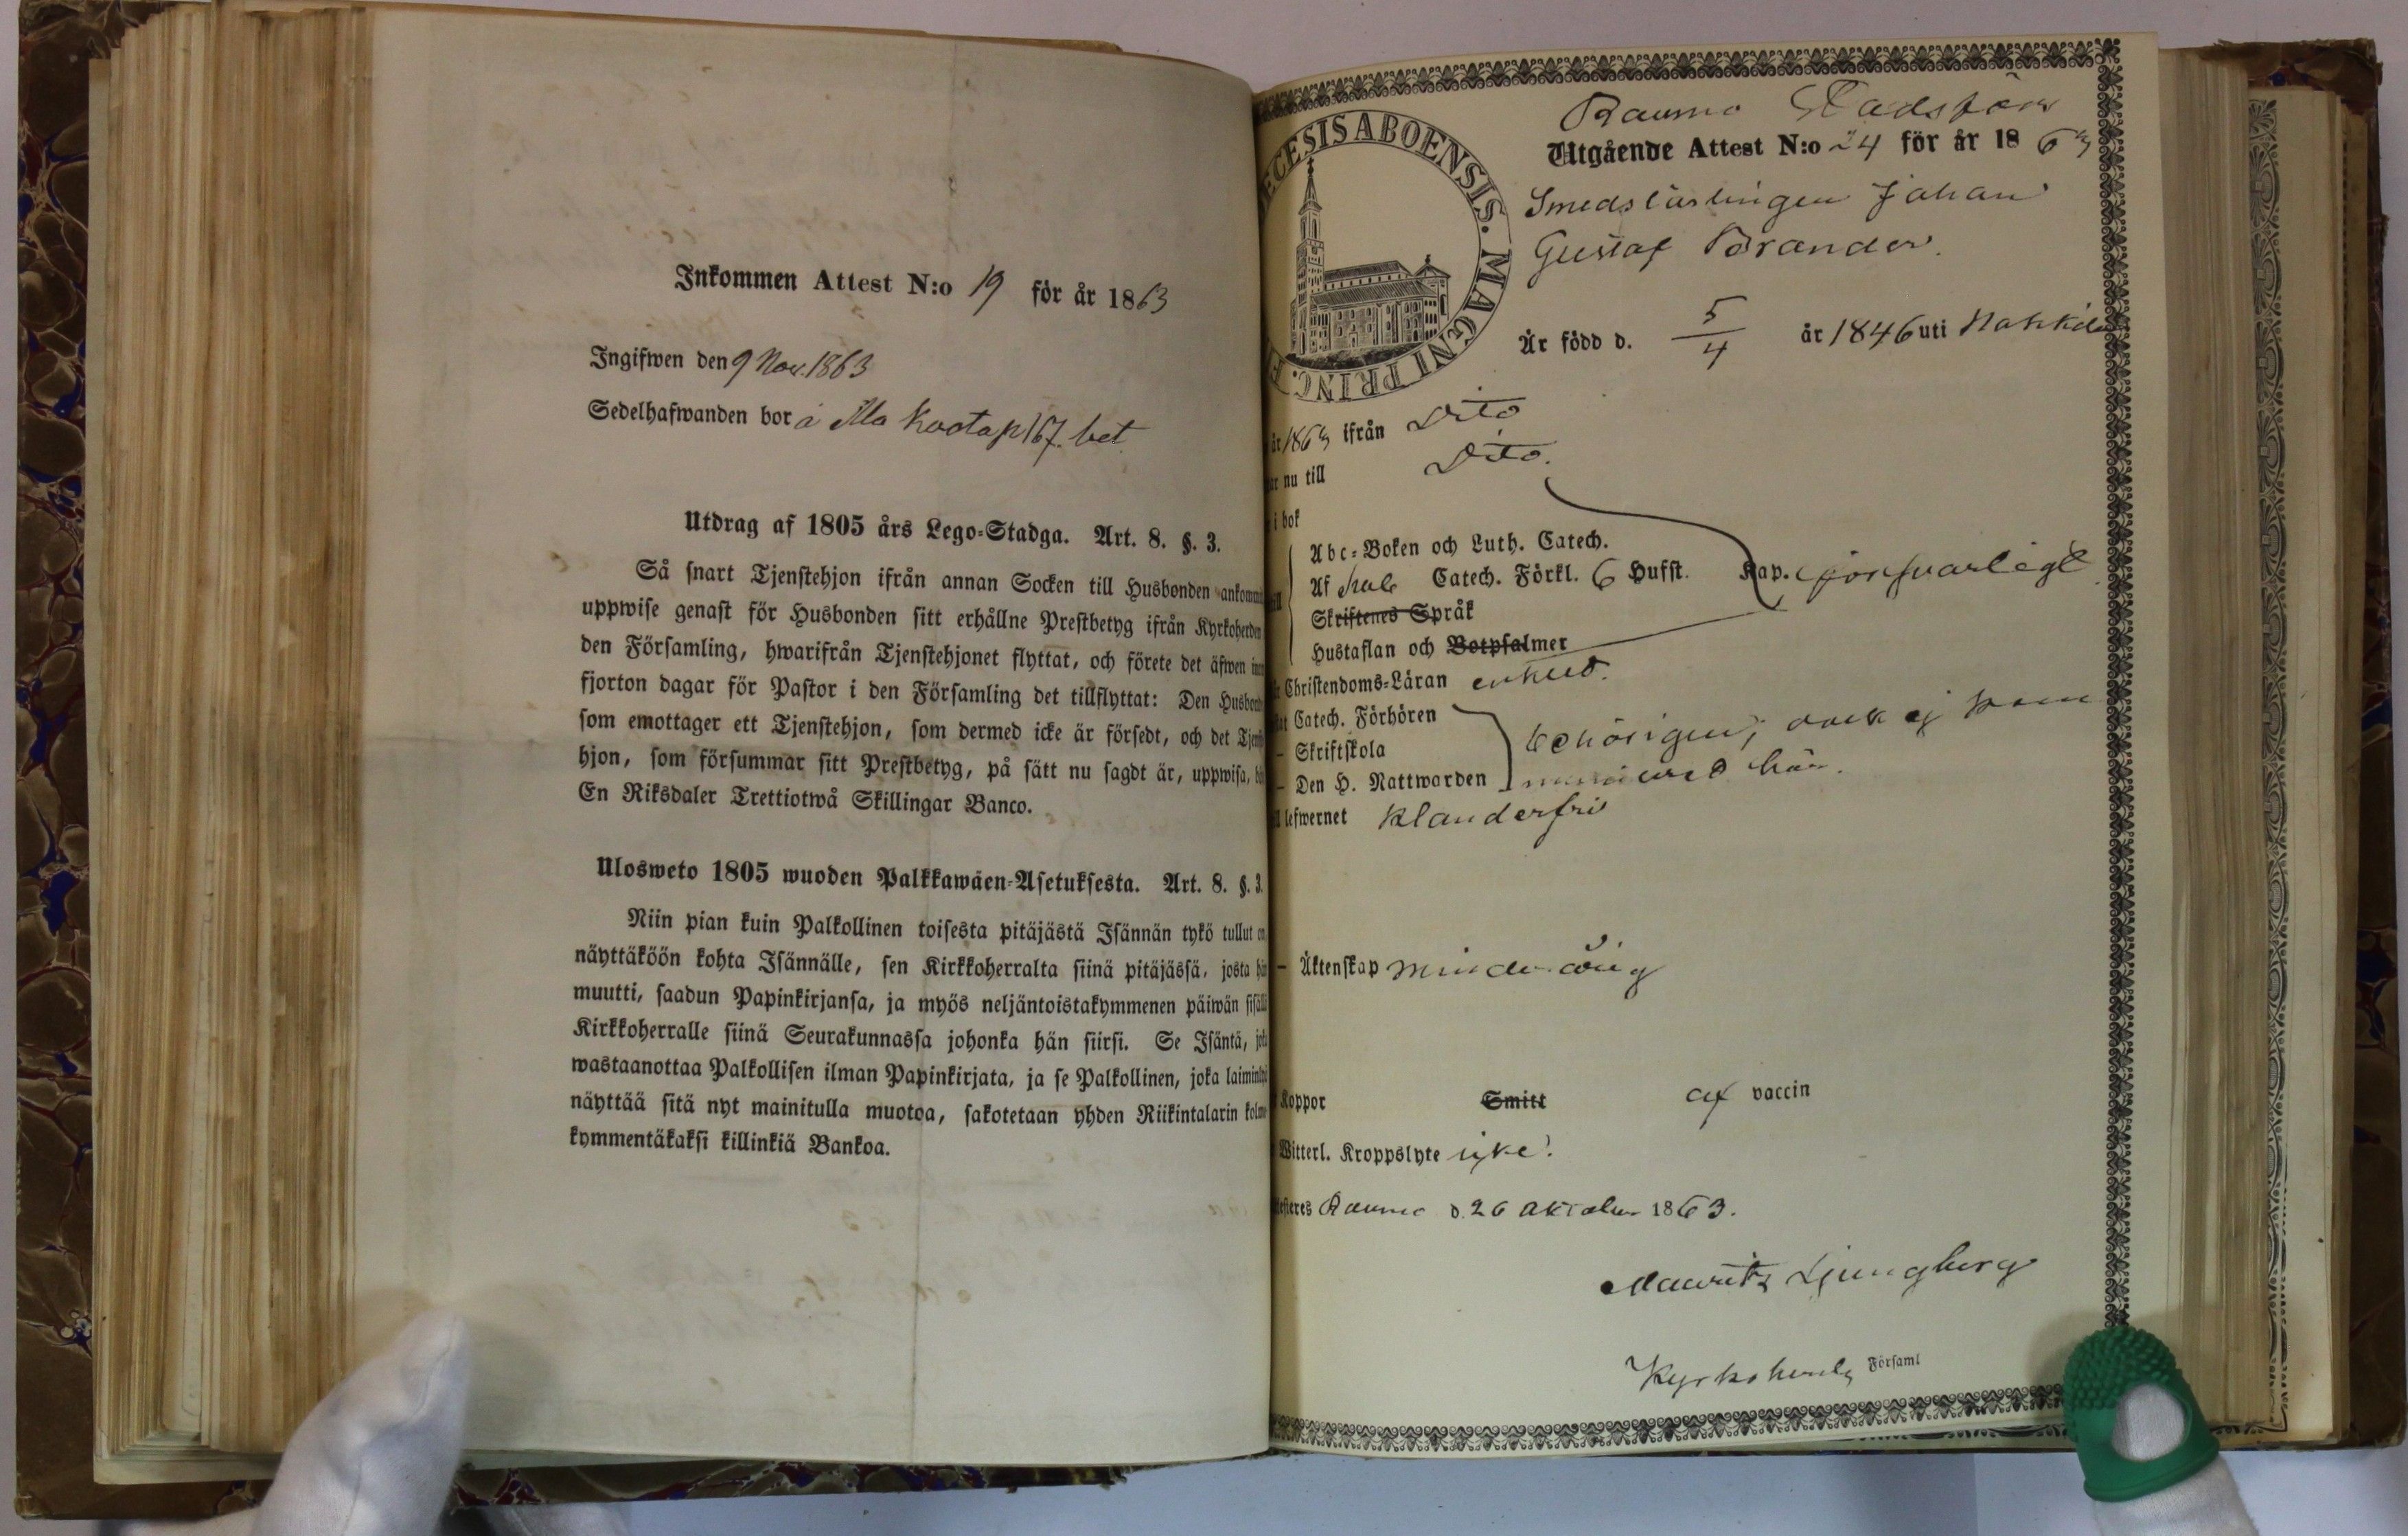 Inkommen Attest N:o 19 för år 1863
Ingifwen den 9 Nov. 1863
Sedelhafwanden bor å Ala Koota p 167. bet.
Utdrag af 1805 års Lego-Stadga. Art. 8. §. 3.
Så snart Tjenstehjon ifrån annan Socken till Husbonden ankomm
uppwise genast för Husbonden sitt erhållne Prestbetyg ifrån Kyrkoherden
den Församling, hwarifrån Tjenstehjonet flyttat, och förete det äfwen in
fjorton dagar för Pastor i den Församling det tillflyttat: Den Husbond
som emottager ett Tjenstehjon, som dermed icke är försedt, och det Tjenst
hjon, som försummar sitt Prestbetyg, på sätt nu sagdt är, uppwisa, b
En Riksdaler Trettiotwå Skillingar Banco.
Ulosweto 1805 wuoden Palkkawäen-Asetuksesta. Art. 8. §. 3.
Niin pian kuin Palkollinen toisesta pitäjästä Isännän tykö tullut on
näyttäköön kohta Isännälle, sen Kirkkoherralta siinä pitäjässä, josta hän
muutti, saadun Papinkirjansa, ja myös neljäntoistakymmenen päiwän sisällä
Kirkkoherralle siinä Seurakunnassa johonka hän siirsi. Se Isäntä, joka
wastaanottaa Palkollisen ilman Papinkirjata, ja se Palkollinen, joka laiminlyö
näyttää sitä nyt mainitulla muotoa, sakotetaan yhden Riikintalarin kolme
kymmentäkaksi killinkiä Bankoa.
Raumo Stadsförs
ECESIS ABOENSIS. MAGNI PRINC. F
Utgående Attest N:o 24 för år 1863
Smedslärlingen Johan
Gustaf Brander.
Är född d. 5/4 år 1846 uti Nakkila
år 1863 ifrån Dito
nu till Dito.
i bok
Abc-Boken och Luth. Catech.
Af Catech. Förkl. 6 Hufst. Kap. försvarligt
Skriftenes Språk
Hustaflan och Botpsalmer
Christendoms-Läran enked.
Catech. Förhören
Skriftskola behörigen, dock ej kom
Den H. Nattwarden municerad här.
lefwernet klanderfri
Äktenskap minderårig
Koppor Smitt af vaccin
Witterl. Kroppslyte icke!
steres Raumo d. 26 Oktober 1863.
Mauritz Ljungberg
Kyrkoherde Församl